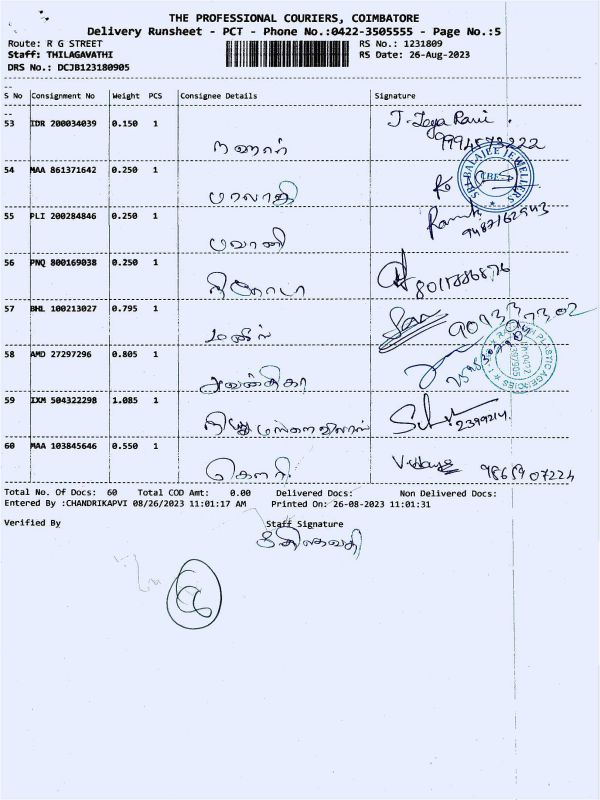 THE PROFESSIONAL COURIERS, COIMBATORE
Delivery Runsheet - PCT - Phone No.:0422-3505555 - Page No.:5
Route: R G STREET RS No.: 1231809
Staff: THILAGAVATHI RS Date: 26-Aug-2023
DRS No.: DCJB123180905
S No Consignment No Weight PCS Consignee Details Signature
53 IDR 200034039 0.150 1
54 MAA 861371642 0.250 1 மாலதி
SRI BALAJEE JEWELLERS
55 PLI 200284846 0.250 1 பவானி
9487162943
56 PNQ 800169038 0.250 1
57 BHL 100213027 0.795 1
58 AMD 27297296 0.805 1 அவந்திகா
PLASTIC AGENCIES
59 IXM 504322298 1.085 1
2399214
60 MAA 103845646 0.550 1 கௌரி
Total No. Of Docs: 60 Total COD Amt: 0.00 Delivered Docs: Non Delivered Docs:
Entered By :CHANDRIKAPVI 08/26/2023 11:01:17 AM Printed On: 26-08-2023 11:01:31
Verified By Staff Signature